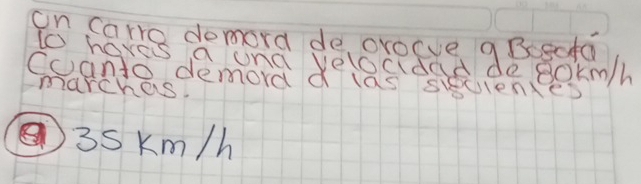 un carro demora de orocue a Bogotá
10 horas a una velocidad de 80km/h
Cuanto demora a las siguientes
marchas.
a) 35 km/h